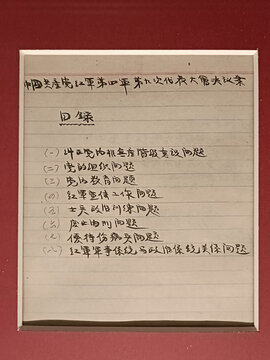 中國共產党紅軍第四軍第九次代表大會決议案
目錄
(一) 糾正党內非無產階級意識問題
(二) 党的組織問題
(三) 党的教育問題
(四) 紅軍宣傳工作問題
(五) 士兵政治訓練問題
(六) 廢止肉刑問題
(七) 優待伤病兵問題
(八) 紅軍軍事係統与政治係統關係問題